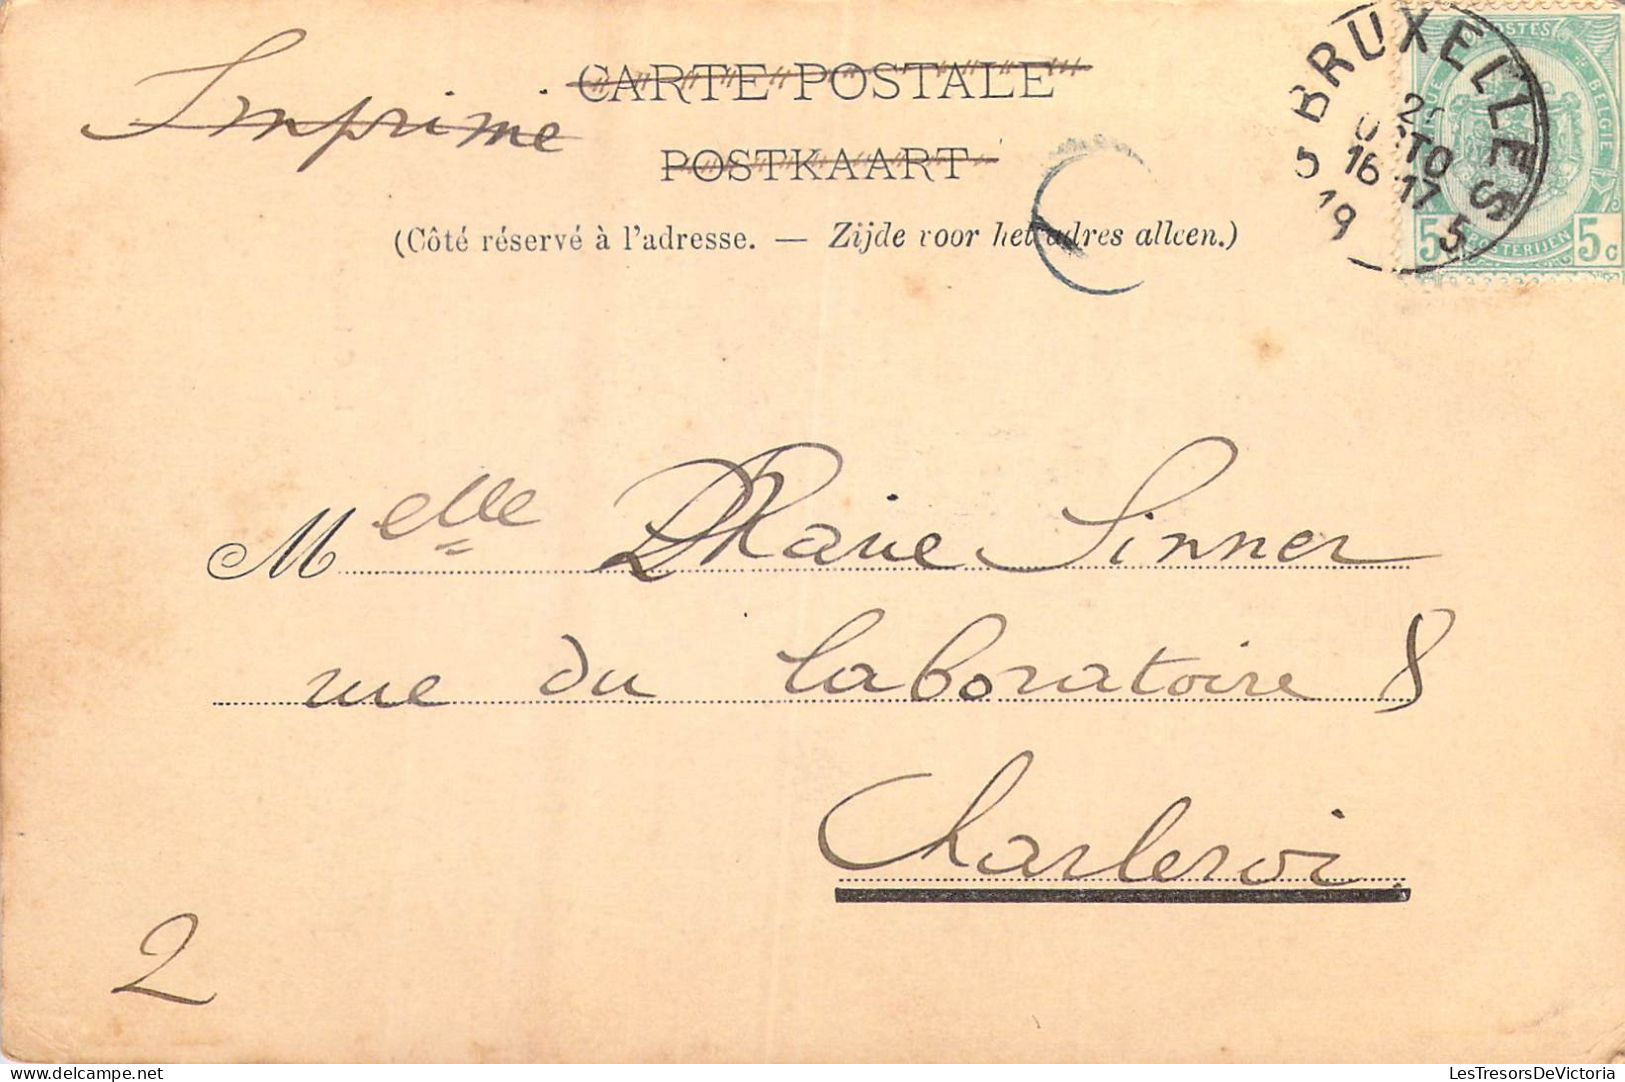 Imprimé
CARTE POSTALE
POSTKAART
(Côté réservé à l'adresse. — Zijde voor het adres alleen.)
BRUXELLES 5
16-17
19 5
POSTES
BELGIE
POSTERIJEN
5 5c
Melle Marie Sinner
rue du laboratoire 8
Charleroi
2
LesTresorsDeVictoria